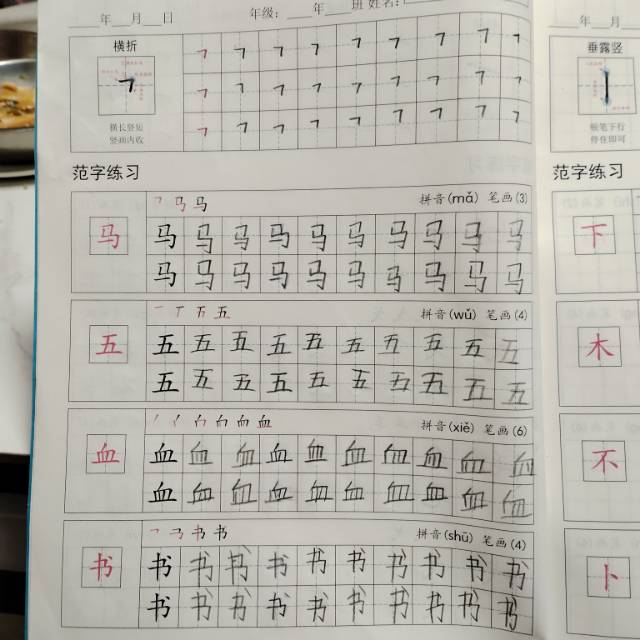 年 月 日 年级: 年 班 姓名:
横折
横长竖短
竖画内收
范字练习
拼音(mǎ) 笔画(3)
马 马 马 马 马 马 马 马 马 马 马
马 马 马 马 马 马 马 马 马 马
拼音(wǔ) 笔画(4)
五 五 五 五 五 五 五 五 五 五 五
五 五 五 五 五 五 五 五 五 五
拼音(xiě) 笔画(6)
血 血 血 血 血 血 血 血 血 血 血
血 血 血 血 血 血 血 血 血 血
拼音(shū) 笔画(4)
书 书 书 书 书 书 书 书 书 书 书
书 书 书 书 书 书 书 书 书 书
年 月
垂露竖
顿笔下行
停住即可
范字练习
下
木
不
卜